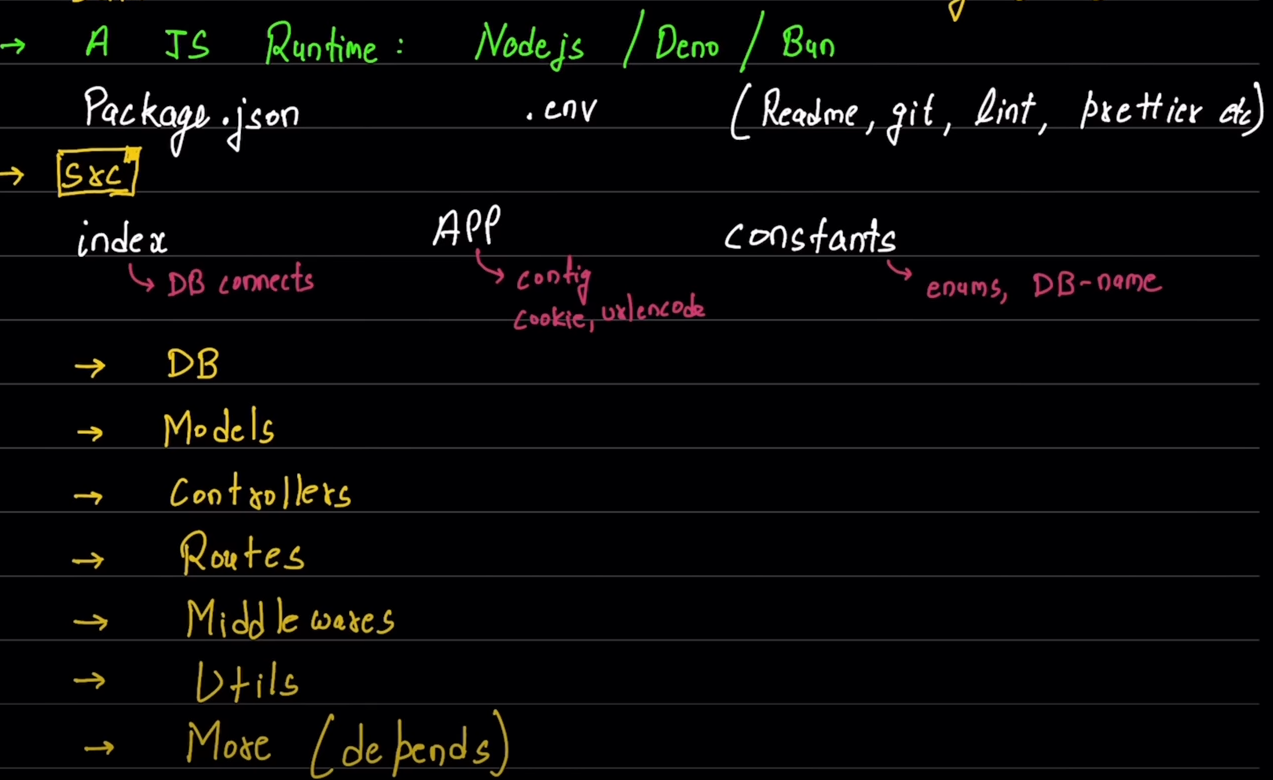 → A JS Runtime: Nodejs / Deno / Bun
Package.json .env (Readme, git, lint, prettier etc)
→ src
index APP constants
↳ DB connects ↳ config ↳ enums, DB-name
cookie, urlencode
→ DB
→ Models
→ Controllers
→ Routes
→ Middlewares
→ Utils
→ More (depends)